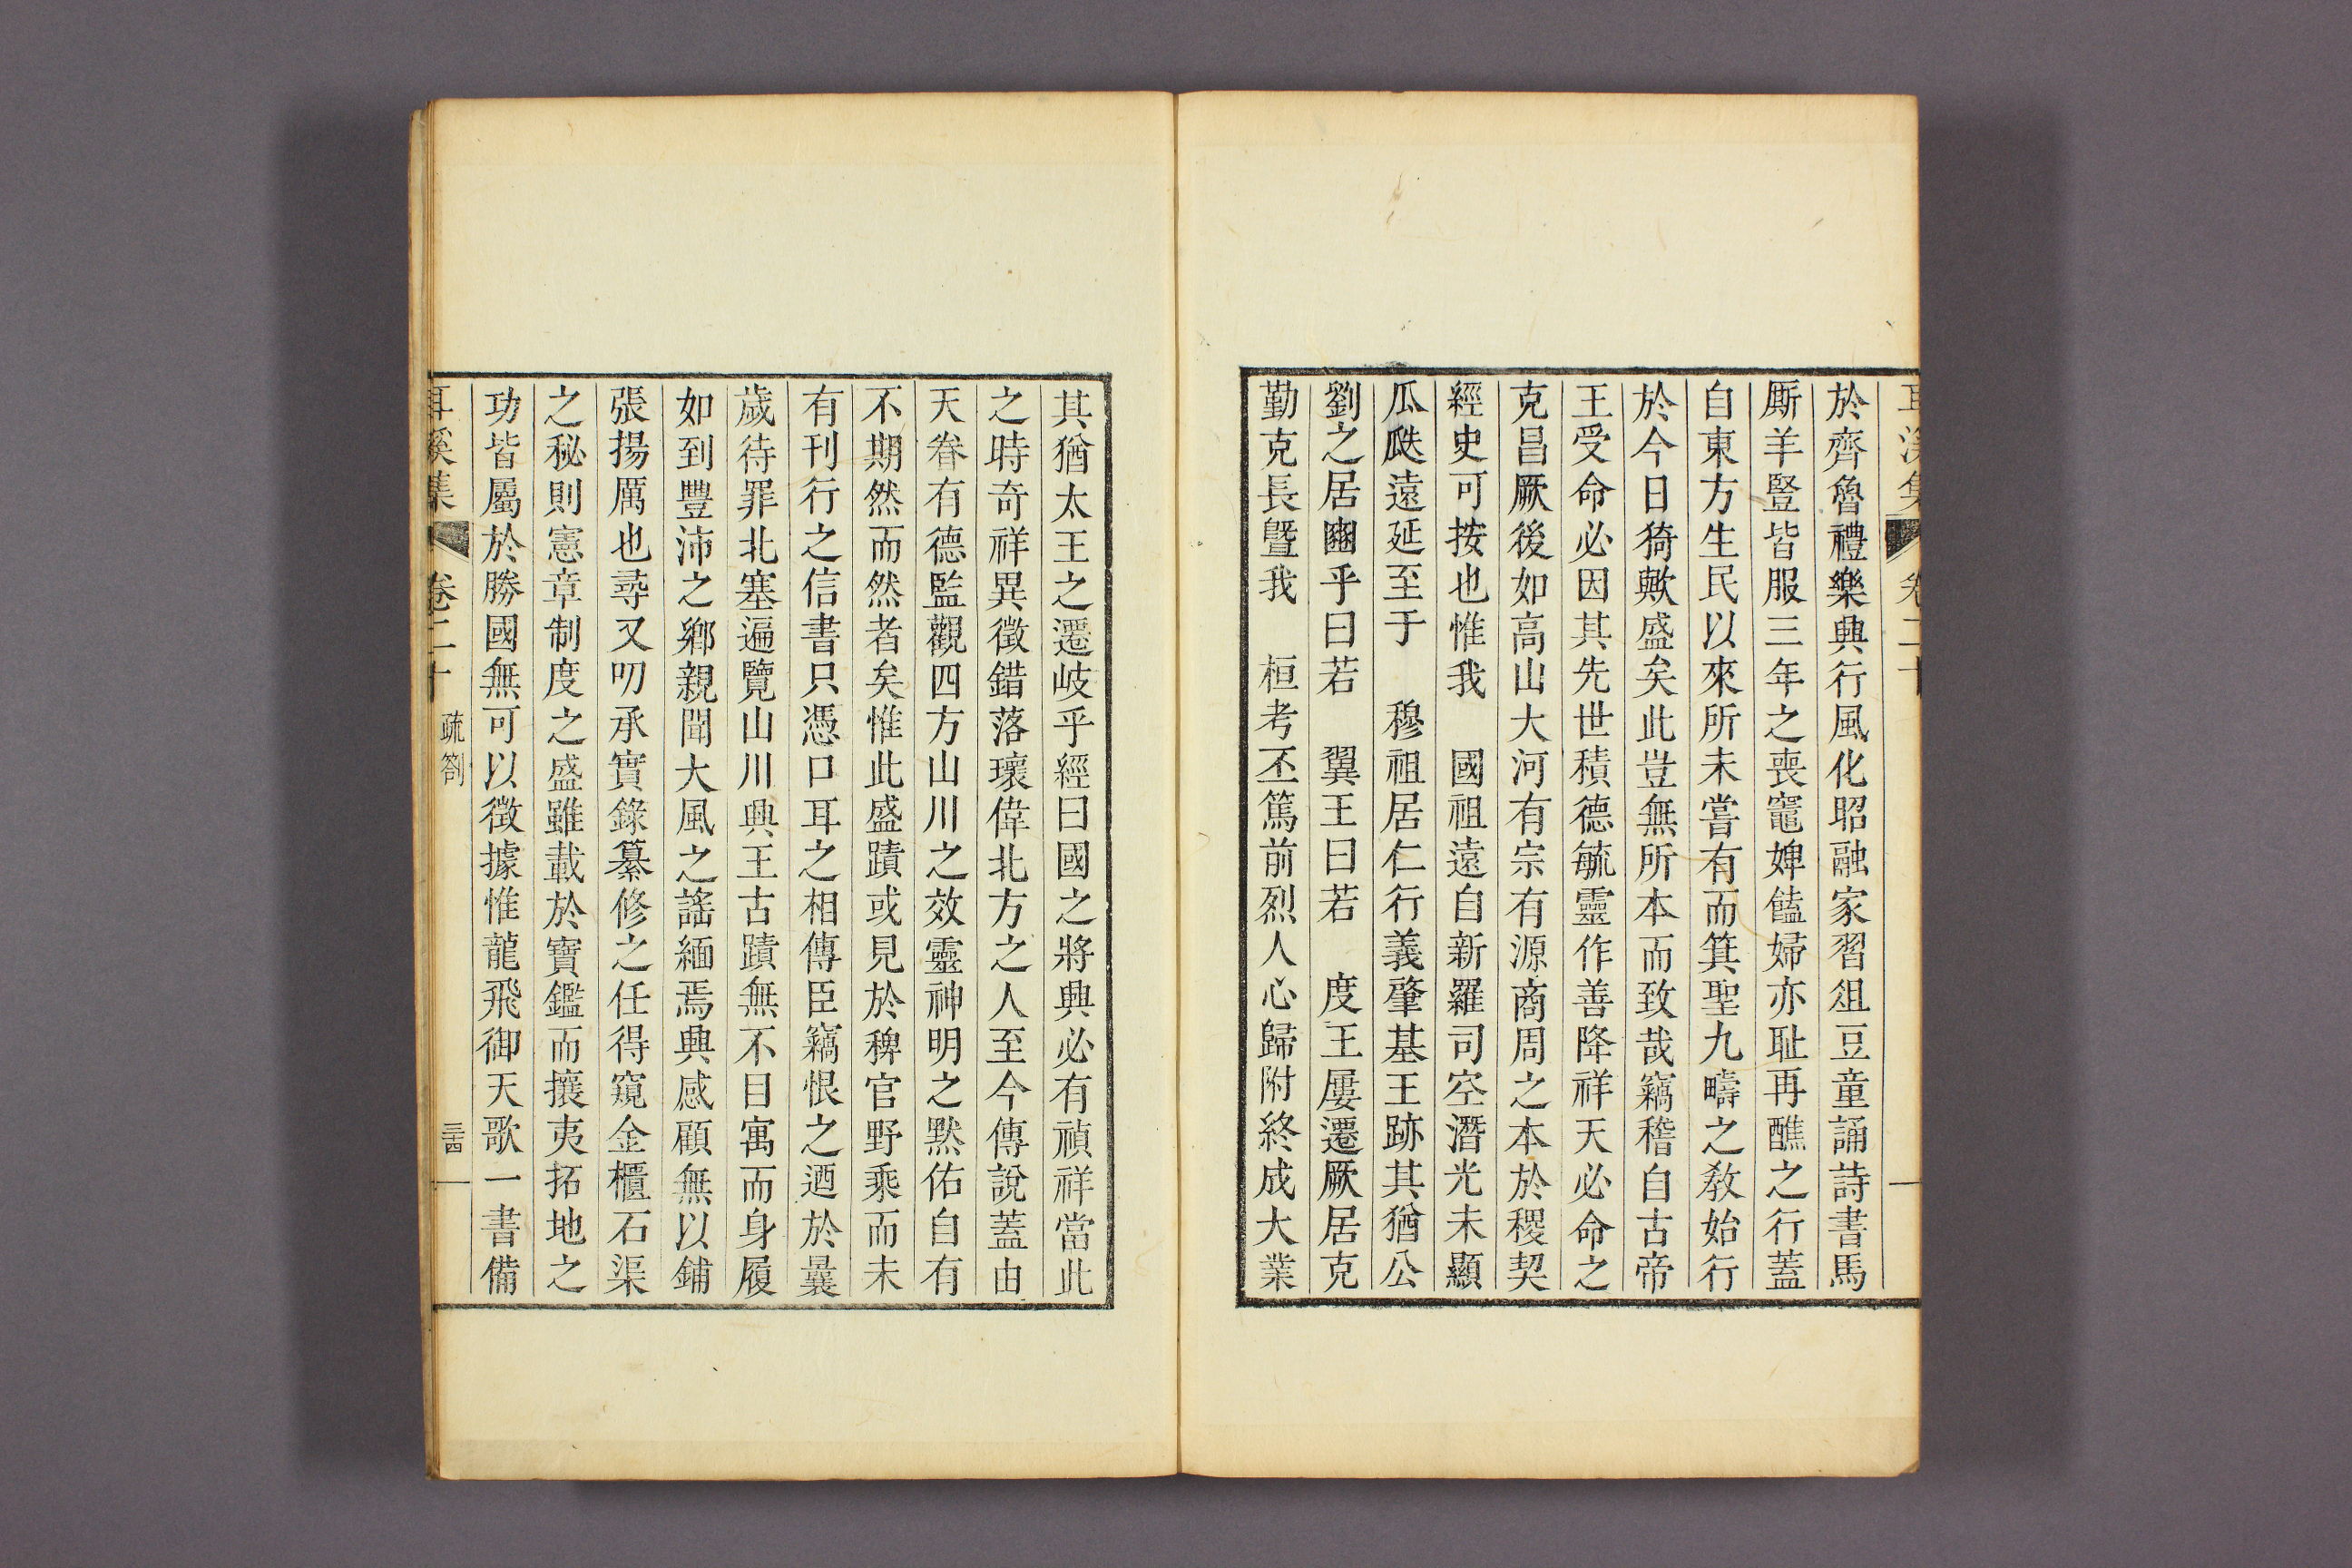 耳溪集 卷二十
於齊魯禮樂興行風化昭融家習俎豆童誦詩書馬
厮羊豎皆服三年之喪竈婢饁婦亦耻再醮之行蓋
自東方生民以來所未嘗有而箕聖九疇之教始行
於今日猗歟盛矣此豈無所本而致哉竊稽自古帝
王受命必因其先世積德毓靈作善降祥天必命之
克昌厥後如高山大河有宗有源商周之本於稷契
經史可按也惟我 國祖遠自新羅司空潛光未顯
瓜瓞遠延至于 穆祖居仁行義肇基王跡其猶公
劉之居豳乎曰若 翼王曰若 度王屢遷厥居克
勤克長曁我 桓考丕篤前烈人心歸附終成大業
其猶太王之遷岐乎經曰國之將興必有禎祥當此
之時奇祥異徵錯落瓌偉北方之人至今傳說蓋由
天眷有德監觀四方山川之效靈神明之黙佑自有
不期然而然者矣惟此盛蹟或見於稗官野乘而未
有刊行之信書只憑口耳之相傳臣竊恨之迺於曩
歲待罪北塞遍覽山川興王古蹟無不目寓而身履
如到豐沛之鄕親聞大風之謠緬焉興感顧無以鋪
張揚厲也尋又叨承實錄纂修之任得窺金櫃石渠
之秘則憲章制度之盛雖載於寶鑑而攘夷拓地之
功皆屬於勝國無可以徵據惟龍飛御天歌一書備
耳溪集 卷二十 疏劄 三十四